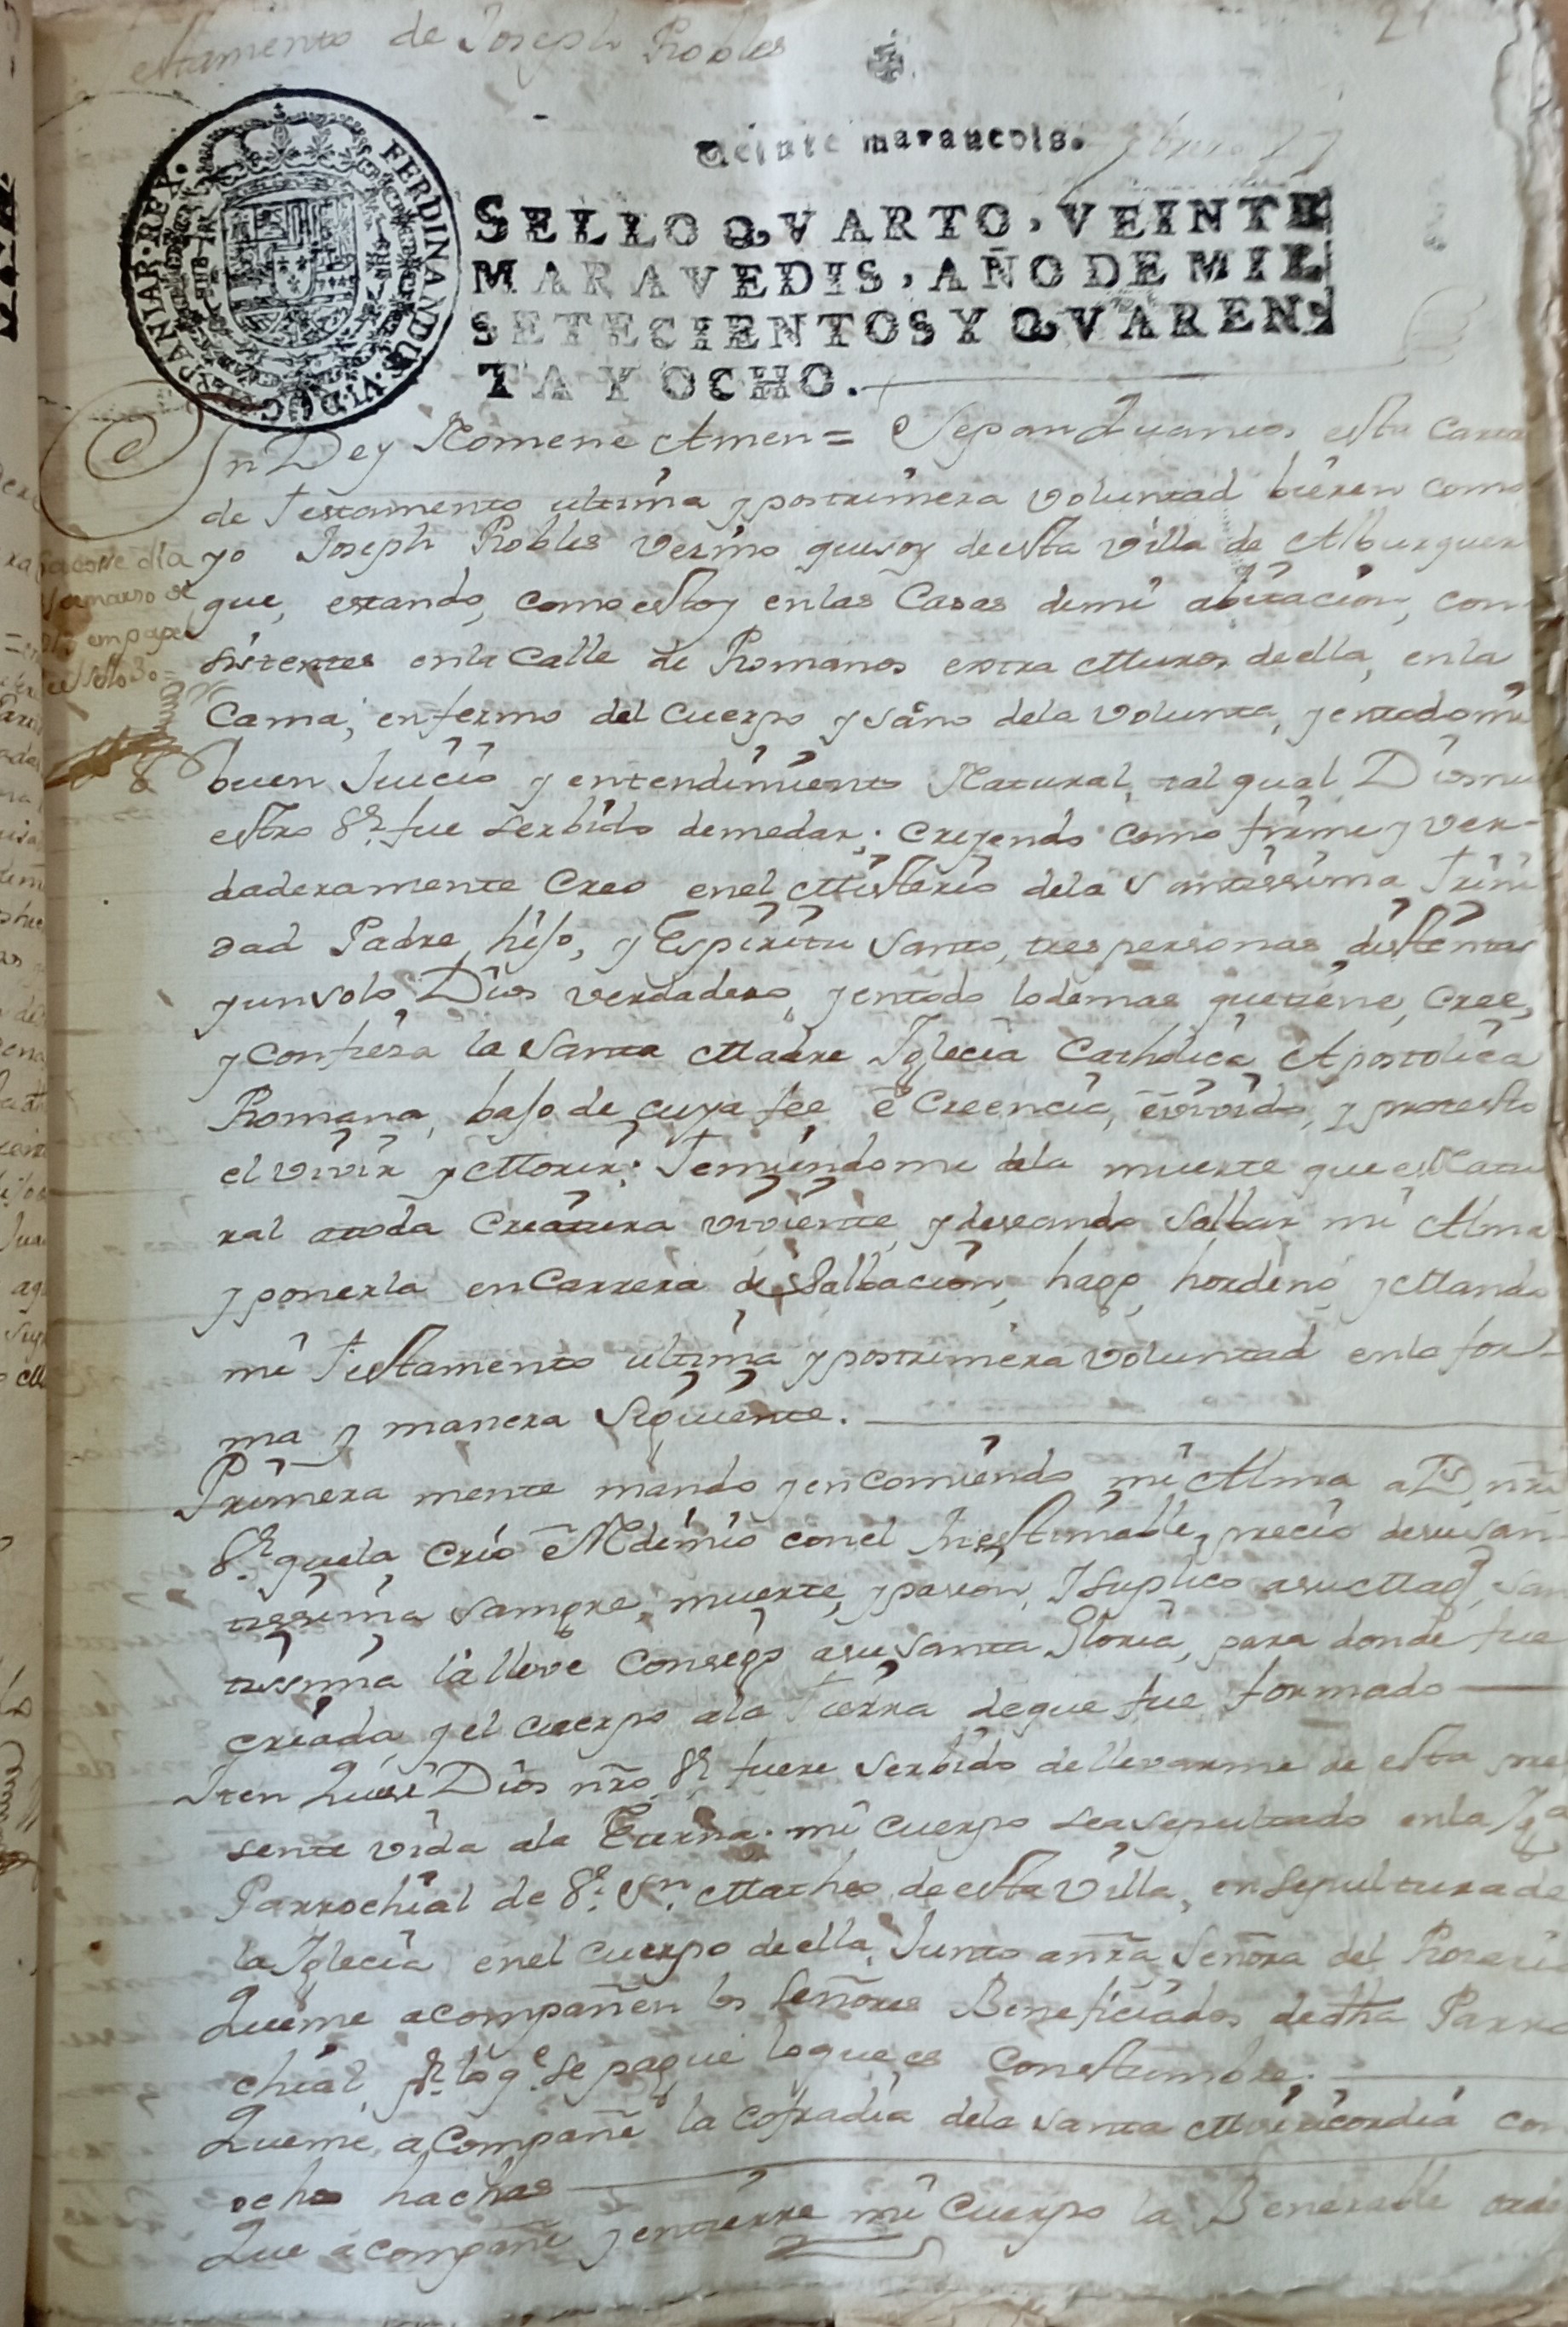 estamento de Joseph Robles
21
Veinte maravedis.
SELLO QVARTO, VEINTE
MARAVEDIS, AÑO DE MIL
SETECIENTOS Y QVAREN-
TA Y OCHO.
FERDINANDUS·VI·D·G· HISPANIAR·REX·
In Dey Nomene Amen = Sepan Quantos esta Carta
de Testamento ultima y postrimera voluntad bieren como
yo Joseph Robles vezino que soy de esta villa de Alburquer
que, estando, como estoy en las Casas de mi abitacion, con
sistentes en la Calle de Romanos extra Muros de ella, en la
Cama, enfermo del Cuerpo y sano de la volunta, y entodo mi
buen Juicio y entendimiento Natural, tal qual Dios nu
estro Sr. fue serbido de me dar; creyendo como firme y ver-
daderamente Creo en el Misterio de la Santissima Trini
dad Padre, hijo, y Espiritu Santo, tres personas distintas
y un solo Dios verdadero, y en todo lo demas que tiene, cree,
y Confiesa la Santa Madre Iglecia Catholica Apostolica
Romana, bajo de cuya fee e Creencia, e vivido, y protesto
el vivir y Morir: Temiendome de la muerte que es Natu
ral a toda Creatura viviente, y deseando Salbar mi Alma
y ponerla en Carrera de Salbacion, hago, hordeno y Mando
mi Testamento ultima y postrimera voluntad en la for-
ma y manera siguiente.
Primera mente mando y en Comiendo mi Alma a Ds. nro
Sr. que la Crio e Redimio con el Inestimable, precio de su san
tissima Sangre, muerte, y pasion, y Suplico a su Magd. San
tissima la lleve Consigo a su Santa Gloria, para donde fue
criada, y el cuerpo a la Tierra de que fue formado
Iten Que si Dios nro. Sr. fuere serbido de llevarme de esta pre
sente vida a la Eterna. mi cuerpo sea sepultado en la Iga
Parrochial de Sr. Sn. Matheo de esta Villa, en sepultura de
la Iglecia en el cuerpo de ella, Junto a nra Señora del Rosario
Que me acompañen los Señores Beneficiados de dha Parro
chial, pr. lo qe. se pague lo que es Constumbre.
Que me, a Compañe la Cofradia de la Santa Misericordia con
ocho hachas
Que a compañe y entierre mi Cuerpo la Benerable orden